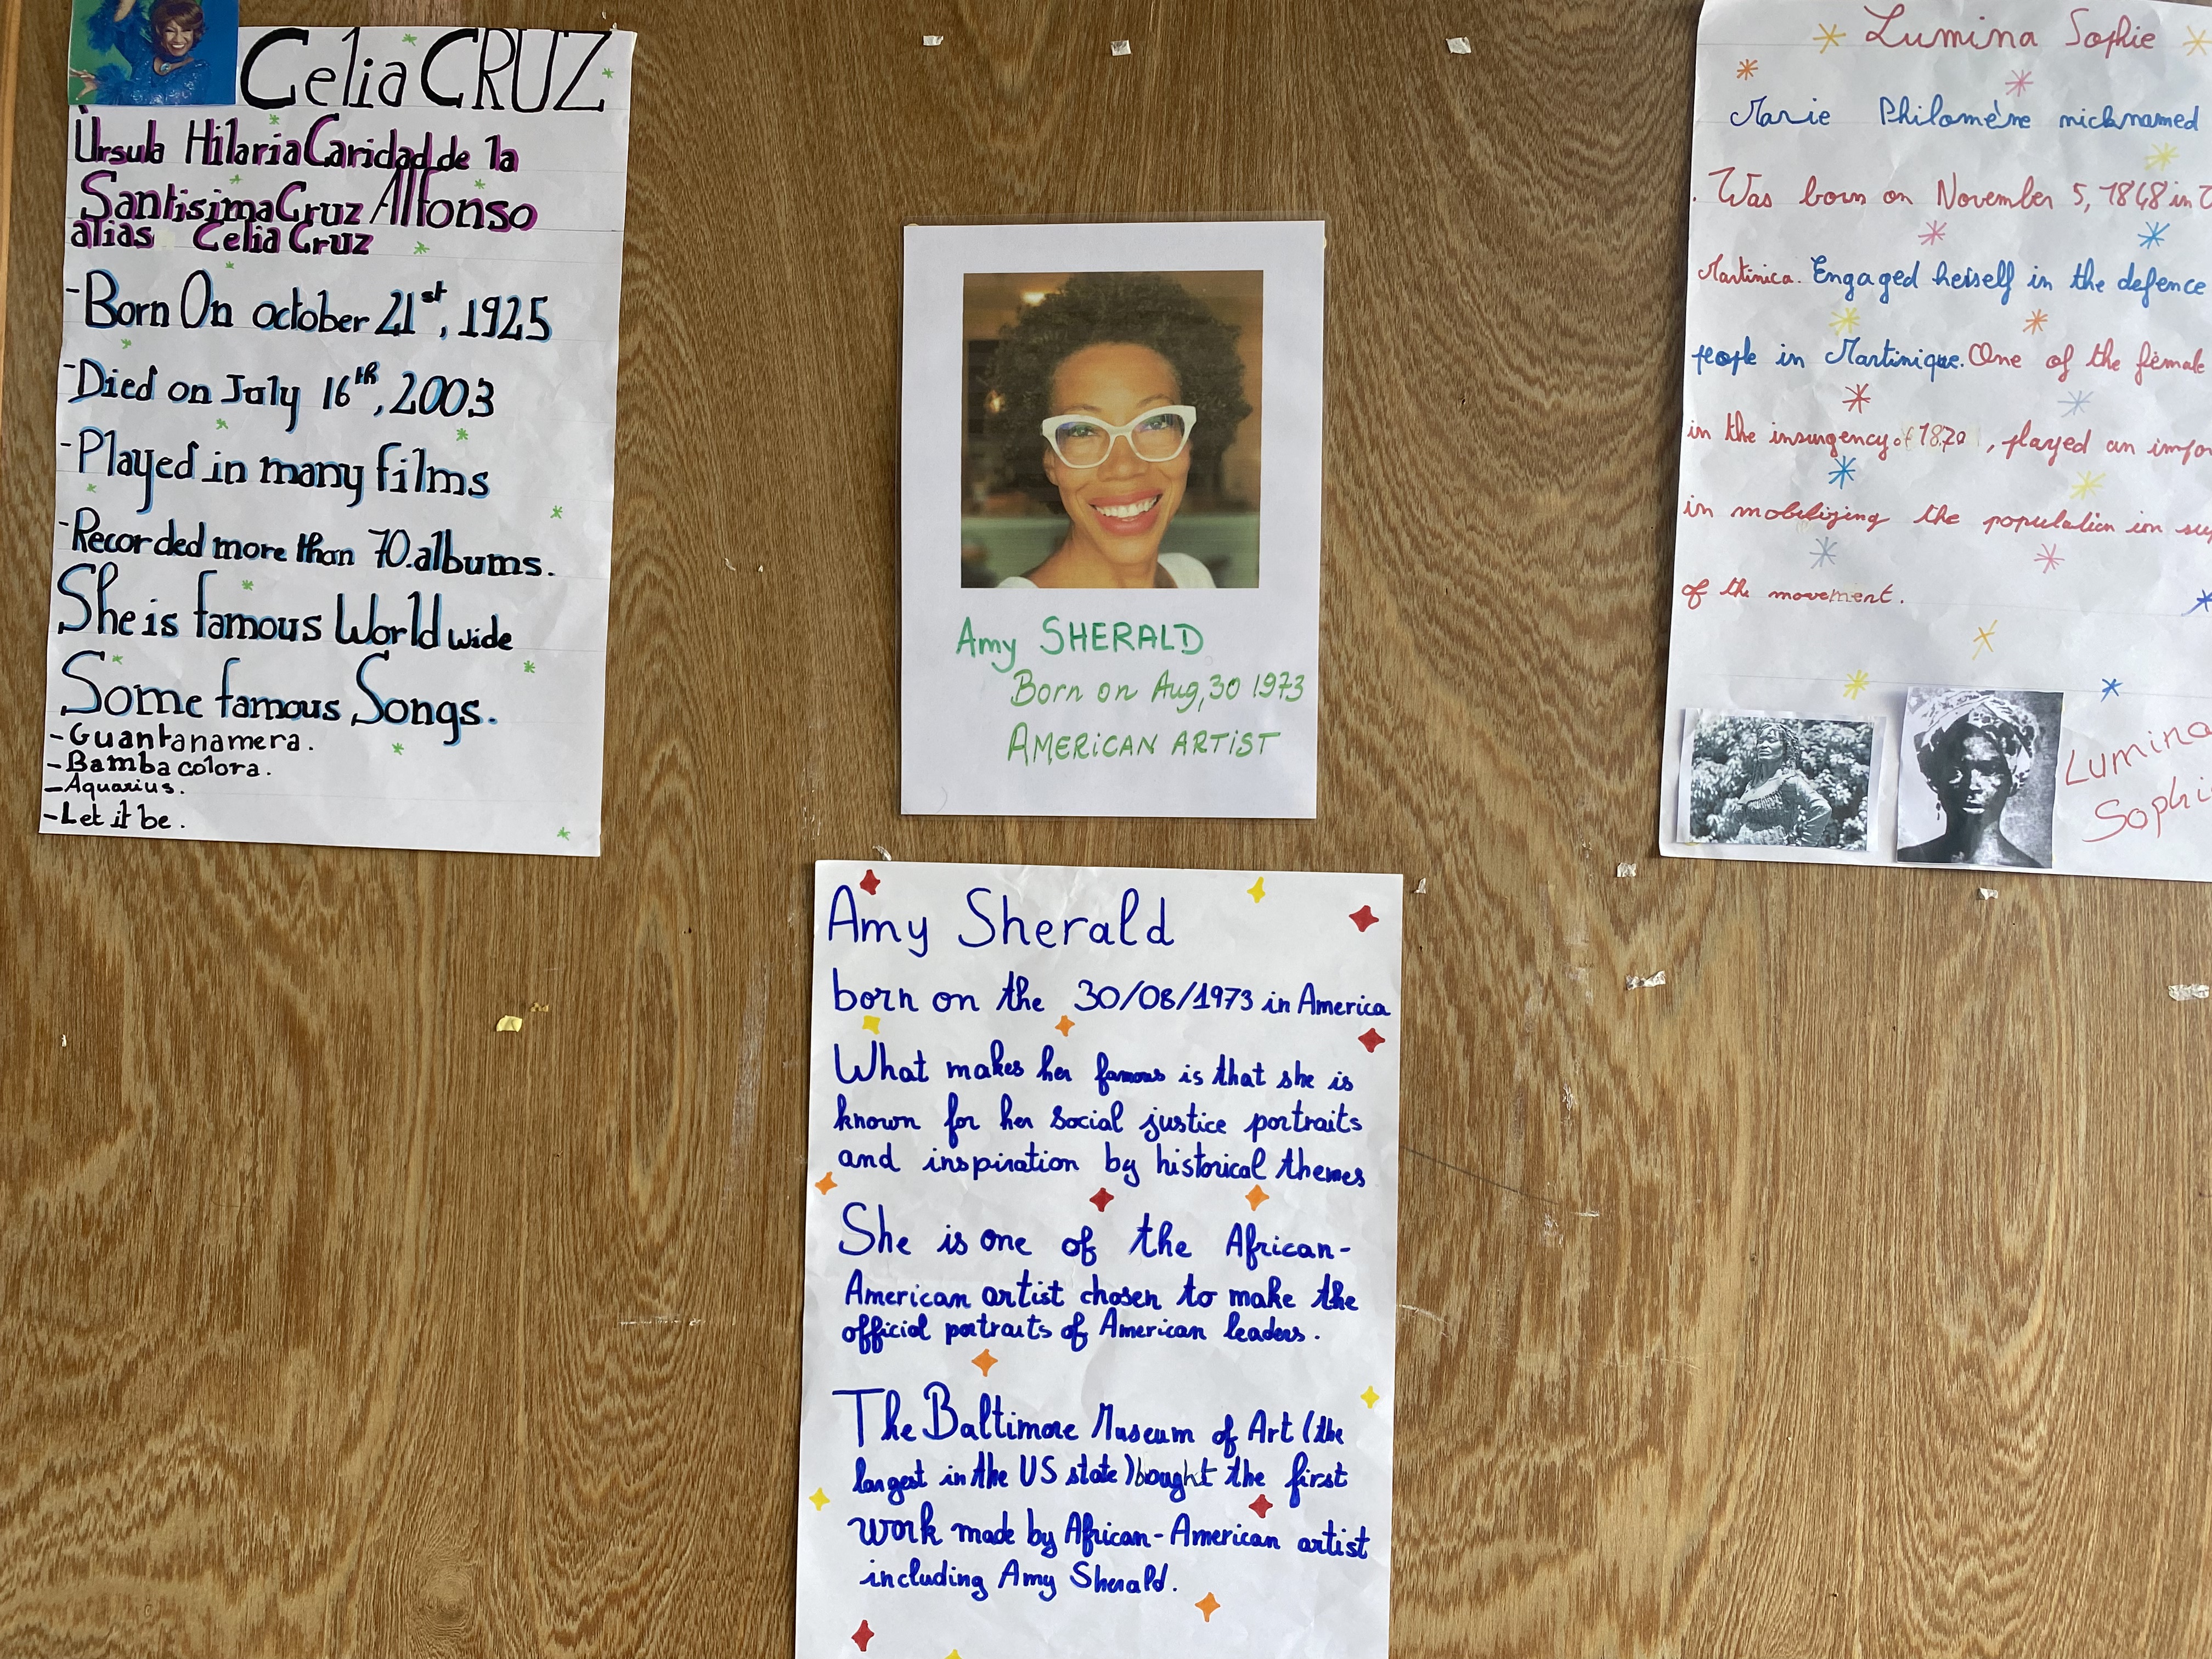 Celia CRUZ
Ùrsula Hilaria Caridad de la
Santisima Cruz Alfonso
alias Celia Cruz
-Born On october 21st, 1925
-Died on July 16th, 2003
-Played in many films
-Recorded more than 70.albums.
She is famous World wide
Some famous Songs.
-Guantanamera.
-Bamba colora.
-Aquarius.
-Let it be.
Amy SHERALD
Born on Aug, 30 1973
AMERICAN ARTIST
Amy Sherald
born on the 30/08/1973 in America
What makes her famous is that she is
known for her social justice portraits
and inspiration by historical themes
She is one of the African-
American artist chosen to make the
official portraits of American leaders.
The Baltimore Museum of Art (the
largest in the US state) bought the first
work made by African-American artist
including Amy Sherald.
Lumina Sophie
Marie Philomène nicknamed
. Was born on November 5, 1848 in
Martinica. Engaged herself in the defence
people in Martinique. One of the female
in the insurgency of 1870, played an
in mobilizing the population in
of the movement.
Lumina